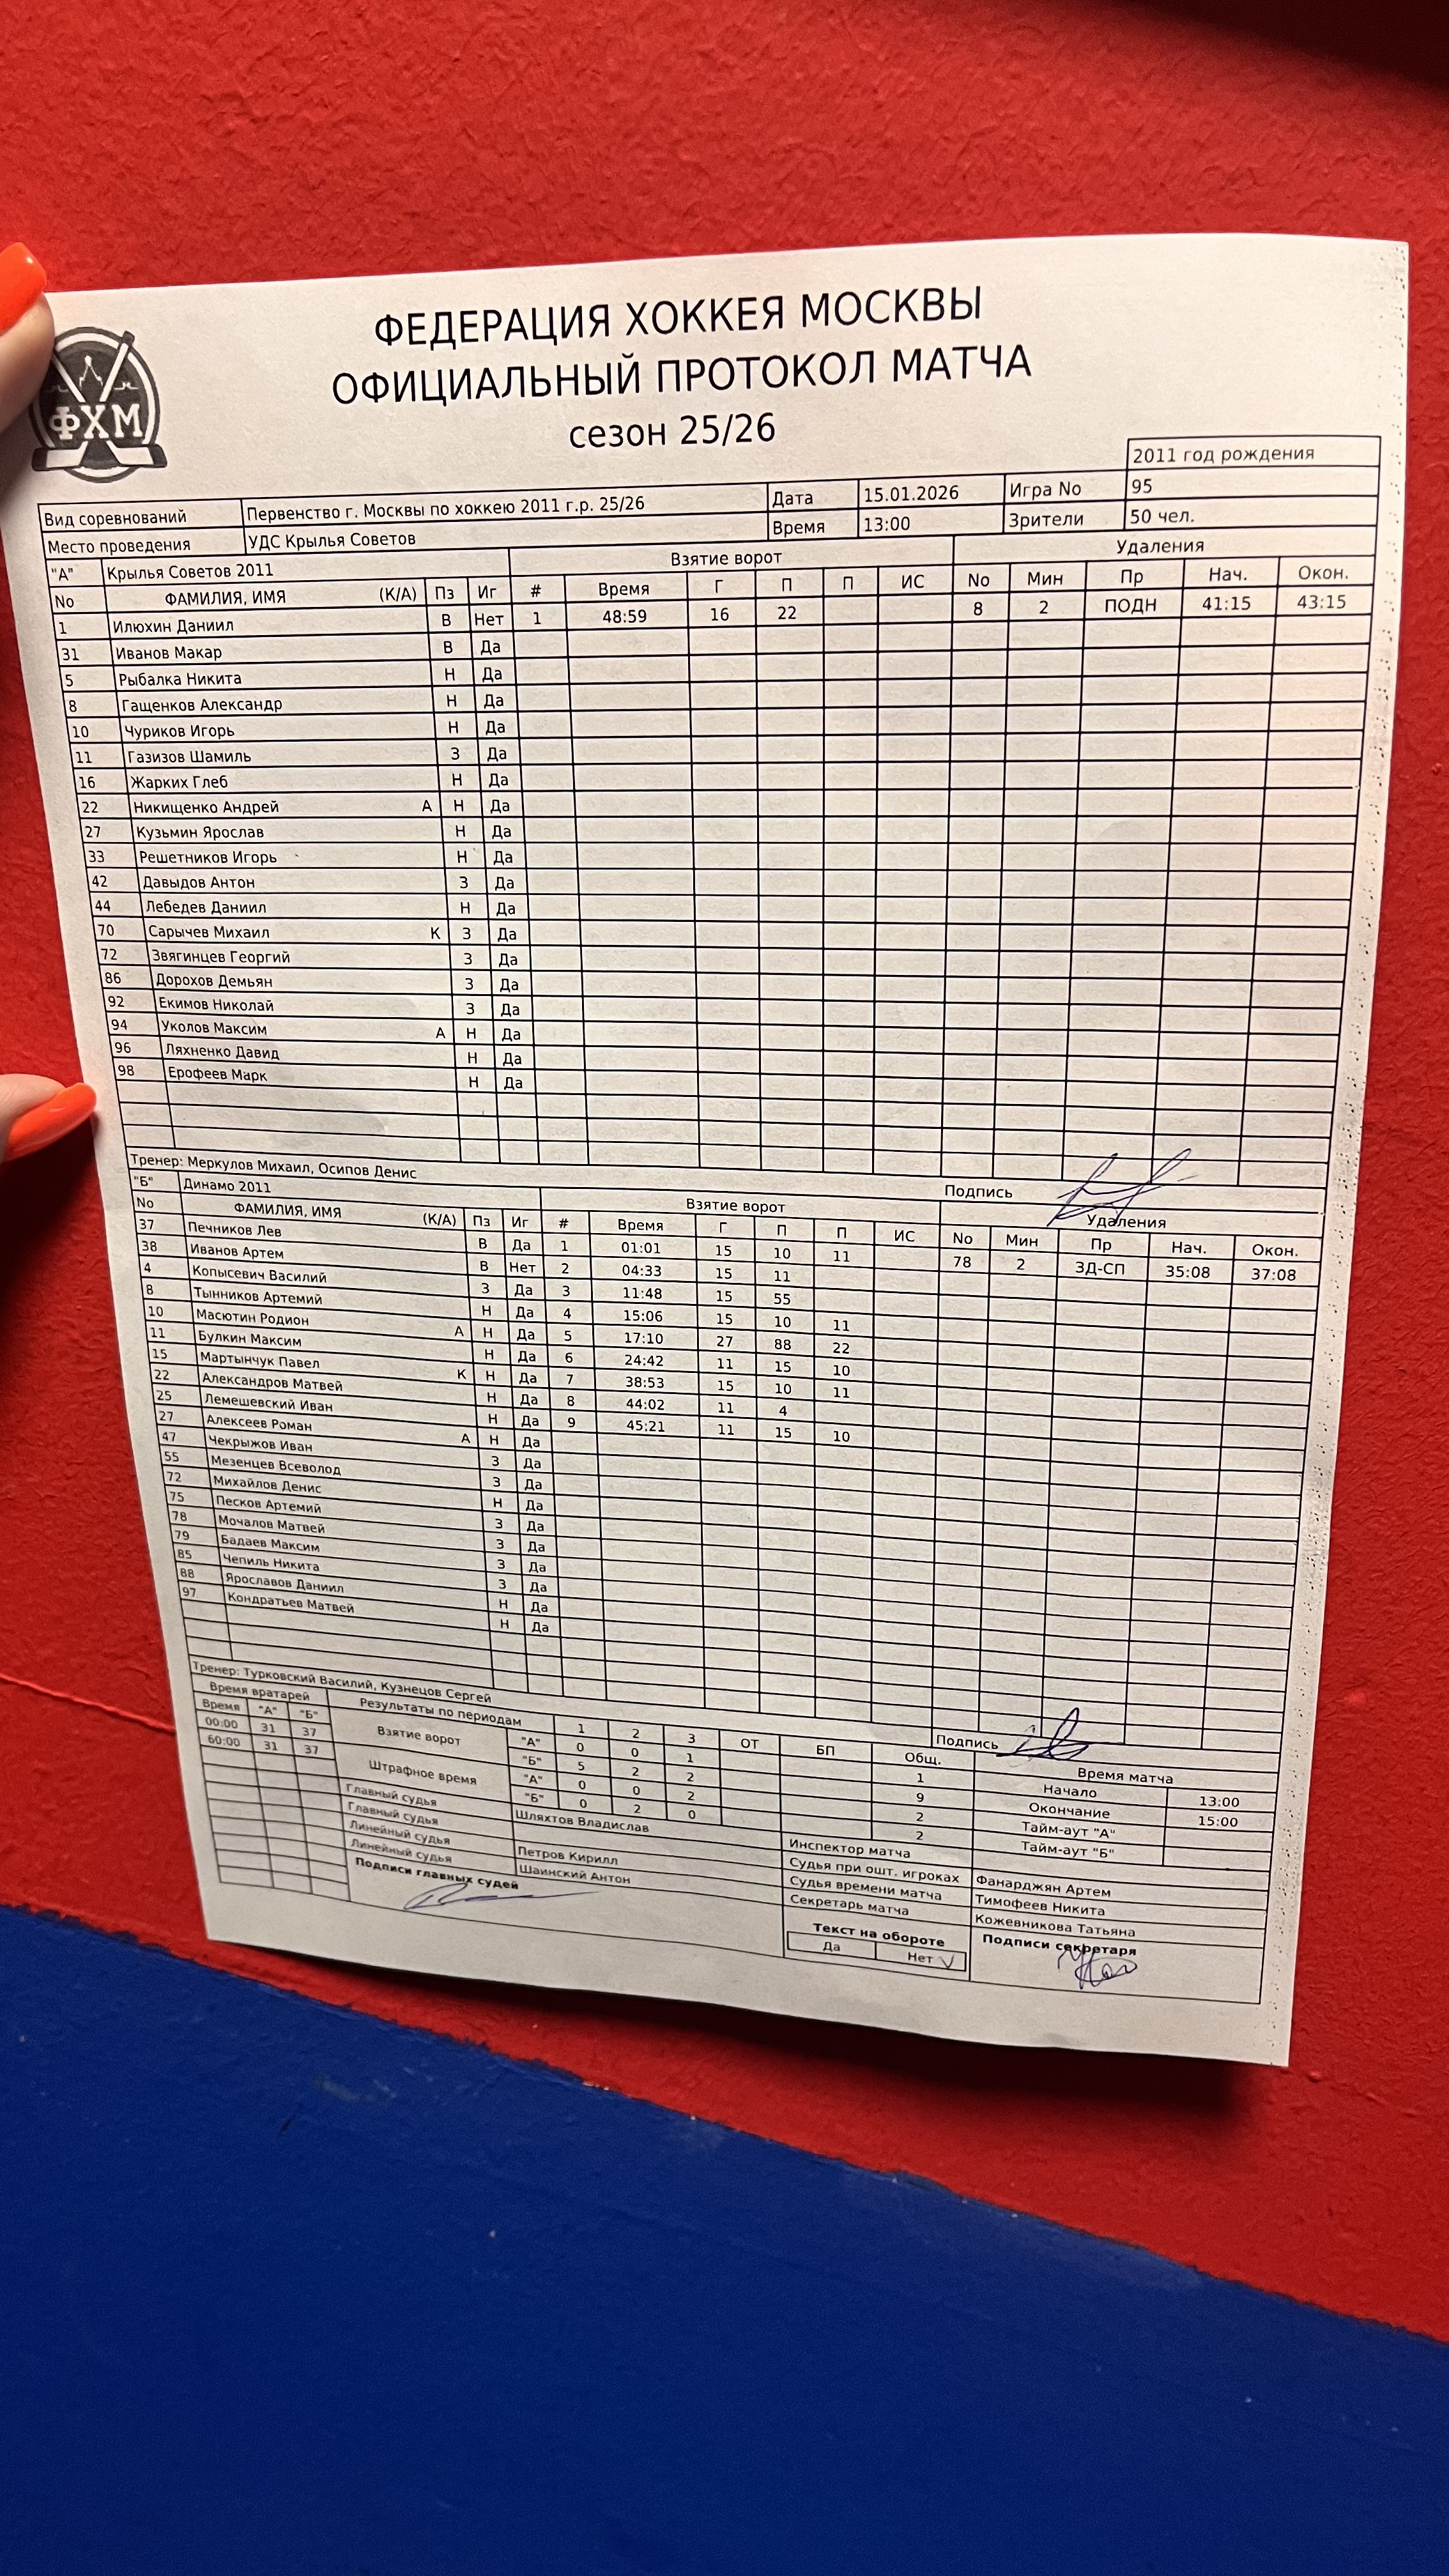 ФЕДЕРАЦИЯ ХОККЕЯ МОСКВЫ
ОФИЦИАЛЬНЫЙ ПРОТОКОЛ МАТЧА
сезон 25/26
ФХМ
2011 год рождения
Вид соревнований Первенство г. Москвы по хоккею 2011 г.р. 25/26 Дата 15.01.2026 Игра No 95
Место проведения УДС Крылья Советов Время 13:00 Зрители 50 чел.
"А" Крылья Советов 2011 Взятие ворот Удаления
No ФАМИЛИЯ, ИМЯ (К/А) Пз Иг # Время Г П П ИС No Мин Пр Нач. Окон.
1 Илюхин Даниил В Нет 1 48:59 16 22 8 2 ПОДН 41:15 43:15
31 Иванов Макар В Да
5 Рыбалка Никита Н Да
8 Гащенков Александр Н Да
10 Чуриков Игорь Н Да
11 Газизов Шамиль З Да
16 Жарких Глеб Н Да
22 Никищенко Андрей А Н Да
27 Кузьмин Ярослав Н Да
33 Решетников Игорь Н Да
42 Давыдов Антон З Да
44 Лебедев Даниил Н Да
70 Сарычев Михаил К З Да
72 Звягинцев Георгий З Да
86 Дорохов Демьян З Да
92 Екимов Николай З Да
94 Уколов Максим А Н Да
96 Ляхненко Давид Н Да
98 Ерофеев Марк Н Да
Тренер: Меркулов Михаил, Осипов Денис Подпись
"Б" Динамо 2011 Взятие ворот Удаления
No ФАМИЛИЯ, ИМЯ (К/А) Пз Иг # Время Г П П ИС No Мин Пр Нач. Окон.
37 Печников Лев В Да 1 01:01 15 10 11 78 2 ЗД-СП 35:08 37:08
38 Иванов Артем В Нет 2 04:33 15 11
4 Копысевич Василий З Да 3 11:48 15 55
8 Тынников Артемий Н Да 4 15:06 15 10 11
10 Масютин Родион А Н Да 5 17:10 27 88 22
11 Булкин Максим Н Да 6 24:42 11 15 10
15 Мартынчук Павел К Н Да 7 38:53 15 10 11
22 Александров Матвей Н Да 8 44:02 11 4
25 Лемешевский Иван Н Да 9 45:21 11 15 10
27 Алексеев Роман А Н Да
47 Чекрыжов Иван З Да
55 Мезенцев Всеволод З Да
72 Михайлов Денис Н Да
75 Песков Артемий З Да
78 Мочалов Матвей З Да
79 Бадаев Максим З Да
85 Чепиль Никита З Да
88 Ярославов Даниил Н Да
97 Кондратьев Матвей Н Да
Тренер: Турковский Василий, Кузнецов Сергей Подпись
Время вратарей Результаты по периодам 1 2 3 ОТ БП Общ. Время матча
Время "А" "Б" Взятие ворот "А" 0 0 1 1 Начало 13:00
00:00 31 37 "Б" 5 2 2 9 Окончание 15:00
60:00 31 37 Штрафное время "А" 0 0 2 2 Тайм-аут "А"
"Б" 0 2 0 2 Тайм-аут "Б"
Главный судья Шляхтов Владислав Инспектор матча
Главный судья Судья при ошт. игроках Фанарджян Артем
Линейный судья Петров Кирилл Судья времени матча Тимофеев Никита
Линейный судья Шаинский Антон Секретарь матча Кожевникова Татьяна
Подписи главных судей Текст на обороте Подписи секретаря
Да Нет V